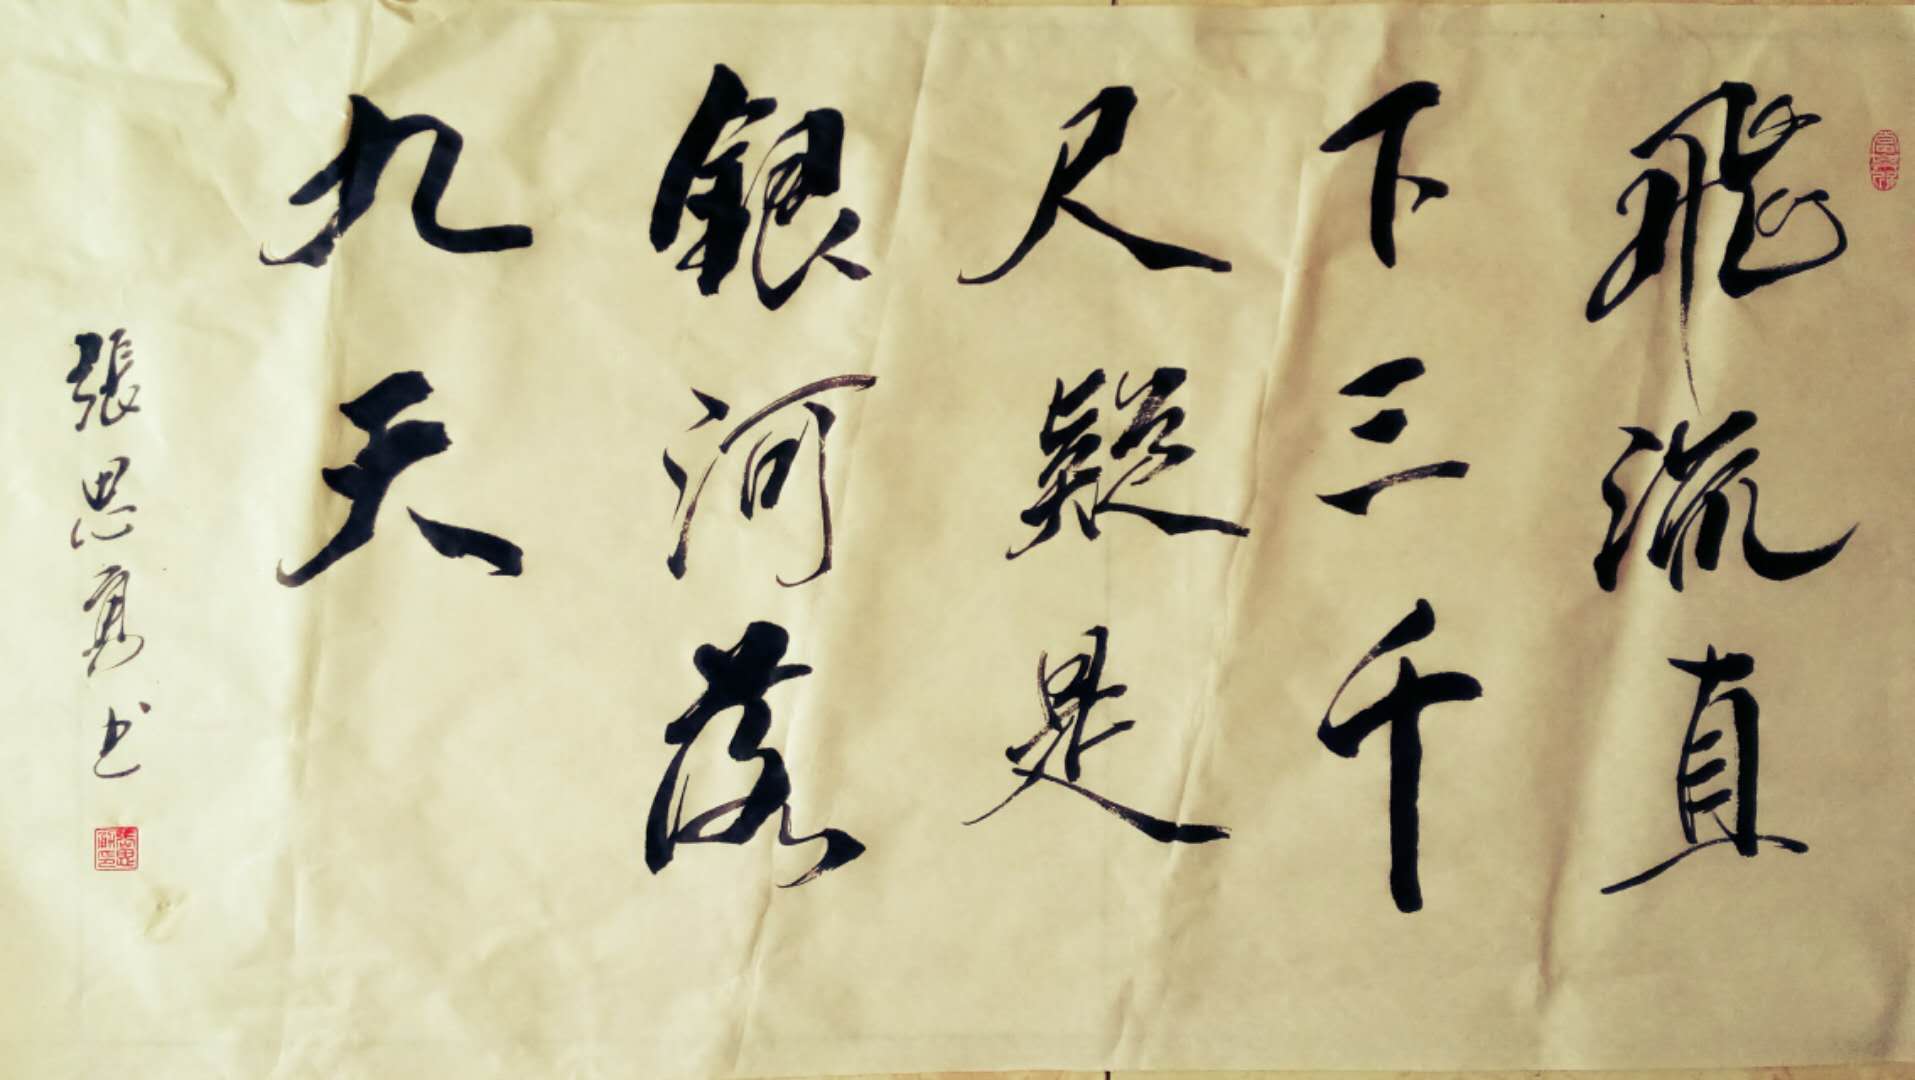 飛流直
下三千
尺疑是
銀河落
九天
張思寬书